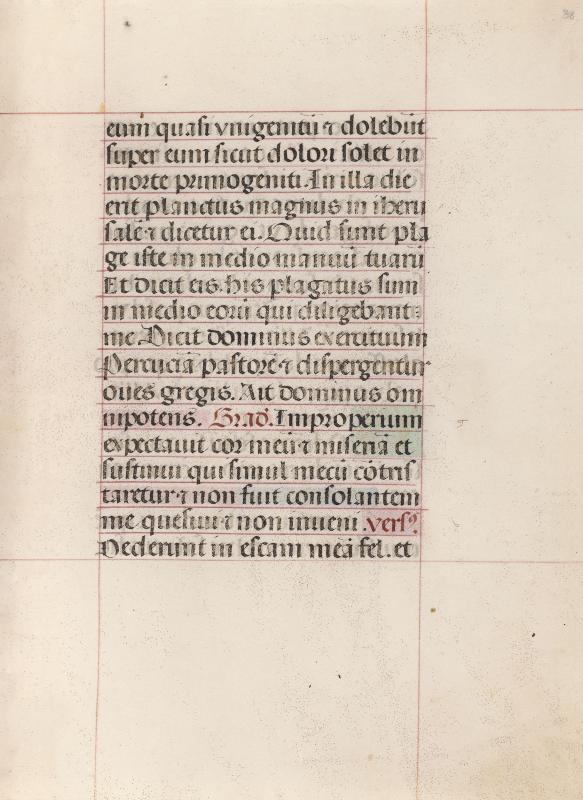 38
eum quasi vnigenitū ⁊ dolebūt
super eum sicut dolori solet in
morte primogeniti. In illa die
erit planctus magnus in iheru
salē ⁊ dicetur ei. Quid sunt pla
ge iste in medio manuū tuarū
Et dicit eis. his plagatus sum
in medio eorū qui diligebant
me. Dicit dominus exercituum
Percuciā pastorē ⁊ dispergentur
oues gregis. Ait dominus om
nipotens. Grad. Improperium
expectauit cor meū ⁊ miseriā et
sustinui qui simul mecū cōtris
taretur ⁊ non fuit consolantem
me quesiui ⁊ non inueni. versꝰ.
Dederunt in escam meā fel. et